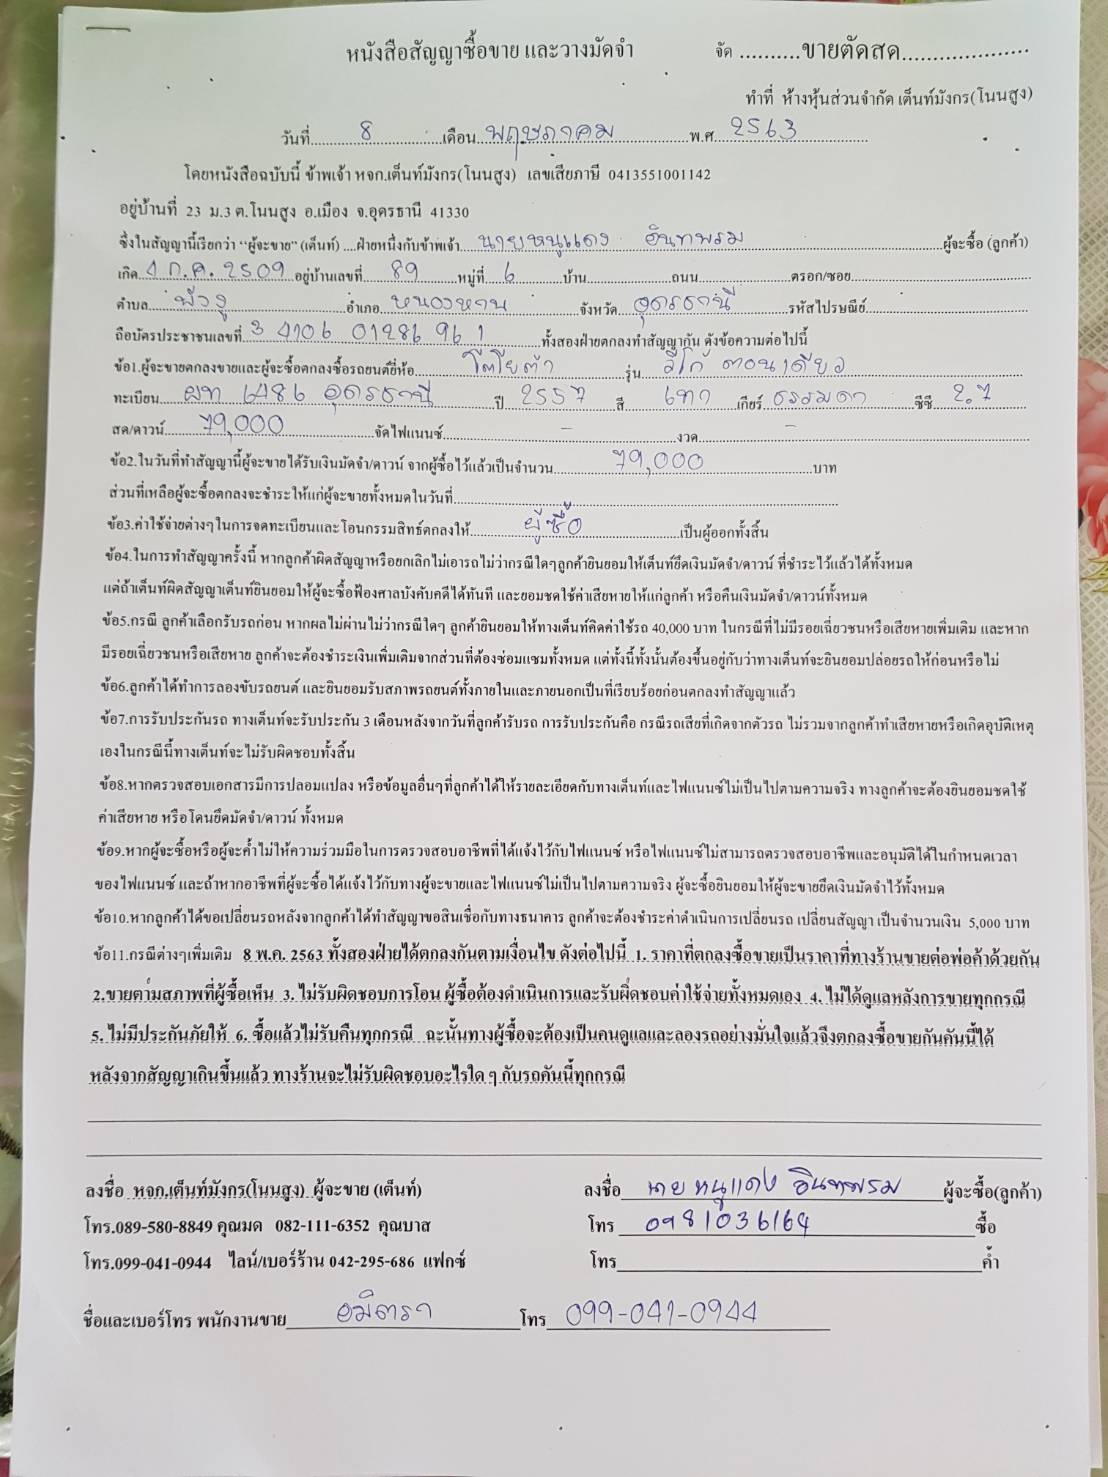 หนังสือสัญญาซื้อขาย และวางมัดจำ จัด ..........ขายตัดสด.....................
ทำที่ ห้างหุ้นส่วนจำกัด เต็นท์มังกร(โนนสูง)
วันที่ 8 เดือน พฤษภาคม พ.ศ. 2563
โดยหนังสือฉบับนี้ ข้าพเจ้า หจก.เต็นท์มังกร(โนนสูง) เลขเสียภาษี 0413551001142
อยู่บ้านที่ 23 ม.3 ต.โนนสูง อ.เมือง จ.อุดรธานี 41330
ซึ่งในสัญญานี้เรียกว่า “ผู้จะขาย” (เต็นท์) ....ฝ่ายหนึ่งกับข้าพเจ้า นายหนูแดง อินทพรม ผู้จะซื้อ (ลูกค้า)
เกิด 1 ก.ค. 2509 อยู่บ้านเลขที่ 89 หมู่ที่ 6 บ้าน ถนน ตรอก/ซอย
ตำบล พังงู อำเภอ หนองหาน จังหวัด อุดรธานี รหัสไปรษณีย์
ถือบัตรประชาชนเลขที่ 3 4106 01286 96 1 ทั้งสองฝ่ายตกลงทำสัญญากัน ดังข้อความต่อไปนี้
ข้อ1.ผู้จะขายตกลงขายและผู้จะซื้อตกลงซื้อรถยนต์ยี่ห้อ โตโยต้า รุ่น วีโก้ ตอนเดียว
ทะเบียน ผท 6486 อุดรธานี ปี 2557 สี เทา เกียร์ ธรรมดา ซีซี 2.7
สด/ดาวน์ 79,000 จัดไฟแนนซ์ - งวด -
ข้อ2.ในวันที่ทำสัญญานี้ผู้จะขายได้รับเงินมัดจำ/ดาวน์ จากผู้ซื้อไว้แล้วเป็นจำนวน 79,000 บาท
ส่วนที่เหลือผู้จะซื้อตกลงจะชำระให้แก่ผู้จะขายทั้งหมดในวันที่
ข้อ3.ค่าใช้จ่ายต่างๆในการจดทะเบียนและโอนกรรมสิทธ์ตกลงให้ ผู้ซื้อ เป็นผู้ออกทั้งสิ้น
ข้อ4.ในการทำสัญญาครั้งนี้ หากลูกค้าผิดสัญญาหรือยกเลิกไม่เอารถไม่ว่ากรณีใดๆลูกค้ายินยอมให้เต็นท์ยึดเงินมัดจำ/ดาวน์ ที่ชำระไว้แล้วได้ทั้งหมด
แต่ถ้าเต็นท์ผิดสัญญาเต็นท์ยินยอมให้ผู้จะซื้อฟ้องศาลบังคับคดีได้ทันที และยอมชดใช้ค่าเสียหายให้แก่ลูกค้า หรือคืนเงินมัดจำ/ดาวน์ทั้งหมด
ข้อ5.กรณี ลูกค้าเลือกรับรถก่อน หากผลไม่ผ่านไม่ว่ากรณีใดๆ ลูกค้ายินยอมให้ทางเต็นท์คิดค่าใช้รถ 40,000 บาท ในกรณีที่ไม่มีรอยเฉี่ยวชนหรือเสียหายเพิ่มเติม และหาก
มีรอยเฉี่ยวชนหรือเสียหาย ลูกค้าจะต้องชำระเงินเพิ่มเติมจากส่วนที่ต้องซ่อมแซมทั้งหมด แต่ทั้งนี้ทั้งนั้นต้องขึ้นอยู่กับว่าทางเต็นท์จะยินยอมปล่อยรถให้ก่อนหรือไม่
ข้อ6.ลูกค้าได้ทำการลองขับรถยนต์ และยินยอมรับสภาพรถยนต์ทั้งภายในและภายนอกเป็นที่เรียบร้อยก่อนตกลงทำสัญญาแล้ว
ข้อ7.การรับประกันรถ ทางเต็นท์จะรับประกัน 3 เดือนหลังจากวันที่ลูกค้ารับรถ การรับประกันคือ กรณีรถเสียที่เกิดจากตัวรถ ไม่รวมจากลูกค้าทำเสียหายหรือเกิดอุบัติเหตุ
เองในกรณีนี้ทางเต็นท์จะไม่รับผิดชอบทั้งสิ้น
ข้อ8.หากตรวจสอบเอกสารมีการปลอมแปลง หรือข้อมูลอื่นๆที่ลูกค้าได้ให้รายละเอียดกับทางเต็นท์และไฟแนนซ์ไม่เป็นไปตามความจริง ทางลูกค้าจะต้องยินยอมชดใช้
ค่าเสียหาย หรือโดนยึดมัดจำ/ดาวน์ ทั้งหมด
ข้อ9.หากผู้จะซื้อหรือผู้จะค้ำไม่ให้ความร่วมมือในการตรวจสอบอาชีพที่ได้แจ้งไว้กับไฟแนนซ์ หรือไฟแนนซ์ไม่สามารถตรวจสอบอาชีพและอนุมัติได้ในกำหนดเวลา
ของไฟแนนซ์ และถ้าหากอาชีพที่ผู้จะซื้อได้แจ้งไว้กับทางผู้จะขายและไฟแนนซ์ไม่เป็นไปตามความจริง ผู้จะซื้อยินยอมให้ผู้จะขายยึดเงินมัดจำไว้ทั้งหมด
ข้อ10.หากลูกค้าได้ขอเปลี่ยนรถหลังจากลูกค้าได้ทำสัญญาขอสินเชื่อกับทางธนาคาร ลูกค้าจะต้องชำระค่าดำเนินการเปลี่ยนรถ เปลี่ยนสัญญา เป็นจำนวนเงิน 5,000 บาท
ข้อ11.กรณีต่างๆเพิ่มเติม 8 พ.ค. 2563 ทั้งสองฝ่ายได้ตกลงกันตามเงื่อนไข ดังต่อไปนี้ 1. ราคาที่ตกลงซื้อขายเป็นราคาที่ทางร้านขายต่อพ่อค้าด้วยกัน
2.ขายตามสภาพที่ผู้ซื้อเห็น 3. ไม่รับผิดชอบการโอน ผู้ซื้อต้องดำเนินการและรับผิดชอบค่าใช้จ่ายทั้งหมดเอง 4. ไม่ได้ดูแลหลังการขายทุกกรณี
5. ไม่มีประกันภัยให้ 6. ซื้อแล้วไม่รับคืนทุกกรณี ฉะนั้นทางผู้ซื้อจะต้องเป็นคนดูแลและลองรถอย่างมั่นใจแล้วจึงตกลงซื้อขายกันคันนี้ได้
หลังจากสัญญาเกินขึ้นแล้ว ทางร้านจะไม่รับผิดชอบอะไรใด ๆ กับรถคันนี้ทุกกรณี
ลงชื่อ หจก.เต็นท์มังกร(โนนสูง) ผู้จะขาย (เต็นท์) ลงชื่อ นาย หนูแดง อินทพรม ผู้จะซื้อ(ลูกค้า)
โทร.089-580-8849 คุณมด 082-111-6352 คุณบาส โทร 0981036164 ซื้อ
โทร.099-041-0944 ไลน์/เบอร์ร้าน 042-295-686 แฟกซ์ โทร ค้ำ
ชื่อและเบอร์โทร พนักงานขาย อมิตรา โทร 099-041-0944